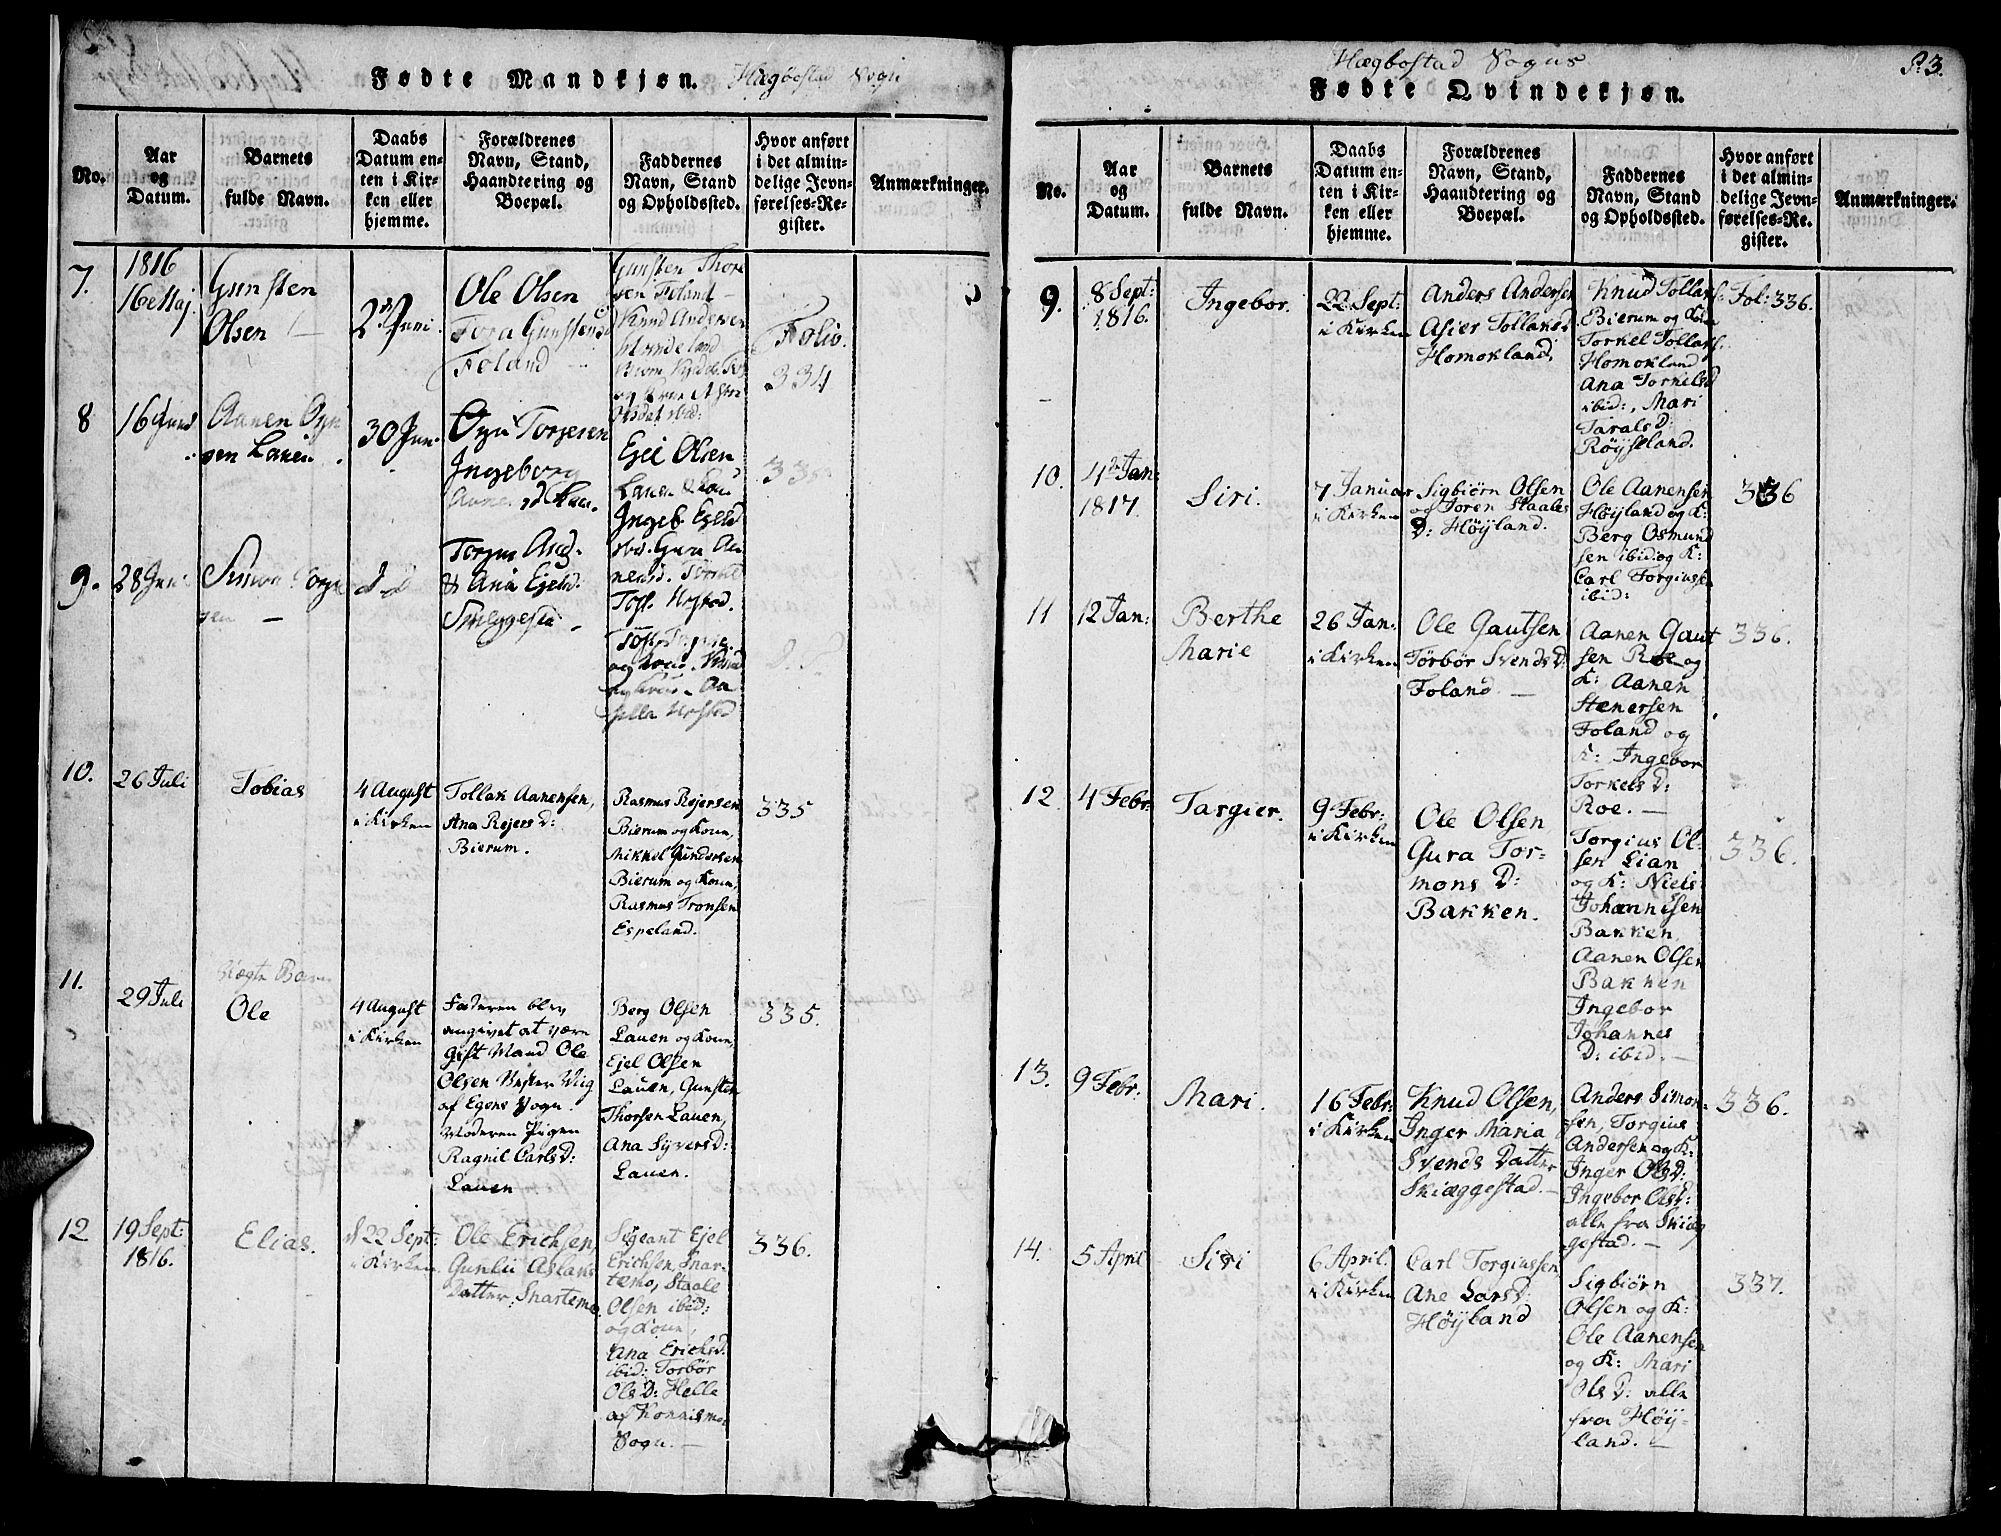 Fødte Mandkjøn. Hægbostad Sogn
No.
Aar
og
Datum.
Barnets
fulde Navn.
Daabs
Datum en-
ten i Kir-
ken eller
hjemme.
Forældrenes
Navn, Stand,
Haandtering og
Boepæl.
Faddernes
Navn, Stand
og Opholdssted.
Hvor anført
i det almin-
delige Jevn-
førelses-Re-
gister.
Anmærkninger.
7.
1816
16 Maj
Gunsten
Olsen
2 Juni
Ole Olsen
Tora Gunstensd
Foland
Gunsten Thor
sen Foland
Knud Andersen
Folio.
334
8
16 Juni
Aanen Ogn
sen Lauen
30 Jun.
Ogn Torjesen
Ingeborg
Ejel Olsen
Lauen & Kon
Ingeb. Ejelsd
ibd. Guru Aa
nensd.
335
9.
28 Juni
Simon
d. d
& Ana Ejelsd:
10.
26 Juli
Tobias
4 August
i Kirken
Tollak Aanensen,
Ana Rejers D:
Bierum.
Rasmus Rejersen
Bierum og Kone,
Mikkel Gundersen
Bierum og Kone,
Rasmus Tronsen
Espeland.
335
11.
29 Juli
Uægte Barn
Ole
4 August
i Kirken
Faderen blev
angivet at være
Gift Mand Ole
Olsen Vester Viig
af Egens Sogn.
Moderen Pigen
Ragnil Carls D:
Lauen
Berg Olsen
Lauen og Kone,
Ejel Olsen
Lauen, Gunsten
Thorsen Lauen,
Ana Syvers D:
Lauen.
335.
12
19 Sept:
1816.
Elias.
d 22 Sept:
i Kirken
Ole Erichsen,
Gunlu Aslaks
Datter, Snartemo.
Sigeant Ejel
Erichsen, Snar-
temo, Staale
Olsen ibid:
og Kone,
Ana Erichs D.
ibid: Torbør
Ols D: Helle
af Konnismo
Sogn.
336.
Hægbostad Sogns
83.
Fødte Qvindekjøn.
No.
Aar
og
Datum.
Barnets
fulde Navn.
Daabs
Datum en-
ten i Kir-
ken eller
hjemme.
Forældrenes
Navn, Stand,
Haandtering og
Boepæl.
Faddernes
Navn, Stand
og Opholdssted.
Hvor anført
i det almin-
delige Jevn-
førelses-Re-
gister.
Anmærkninger.
9.
8 Sept:
1816.
Ingebor.
22 Sept:
i Kirken
Anders Andersen
Asier Tollaks D
Homokland.
Knud Tollaks:
Bierum og Kone
Torkel Tollaks.
Homokland
Ana Torkelsd
ibid:, Mari
Tarals D:
Røyseland.
Fol: 336.
10.
4de Jan:
1817.
Siri.
7 Januar
i Kirken
Sigbiørn Olsen
og Joren Staales
D: Høyland.
Ole Aanensen
Høyland og K:
Berg Osmund
sen ibid: og K:
Carl Torgiussen
ibid:
336
11
12 Jan:
Berthe
Marie
26 Jan.
i Kirken
Ole Gautsen
Torbør Svends D.
Foland.
Aanen Gaut
sen Roe og
K: Aanen
Stenersen
Foland og
K: Ingebor
Torkels D:
Roe.
336.
12
4 Febr:
Targier.
9 Febr:
i Kirken
Ole Olsen
Gura Tor-
mons D:
Bakken.
Torgius Ol-
sen Lian
og K: Niels
Johannesen
Bakken,
Aanen Olsen
Bakken
Ingebor
Johannes
D: ibid.
336.
13.
9 Febr.
Mari.
16 Febr:
i Kirken
Knud Olsen,
Inger Maria
Svends Datter
Skiæggestad.
Anders Simon-
sen, Torgius
Andersen og K:
Inger Ols D:
Ingebor Ols D:
alle fra Skiæg
gestad.
336.
14.
5 April
Siri
6 April.
i Kirken
Carl Torgiussen
Ane Lars D:
Høyland
Sigbiørn
Olsen og K:
Ole Aanensen
og K: Mari
Ols D: alle
fra Høy-
land.
337.